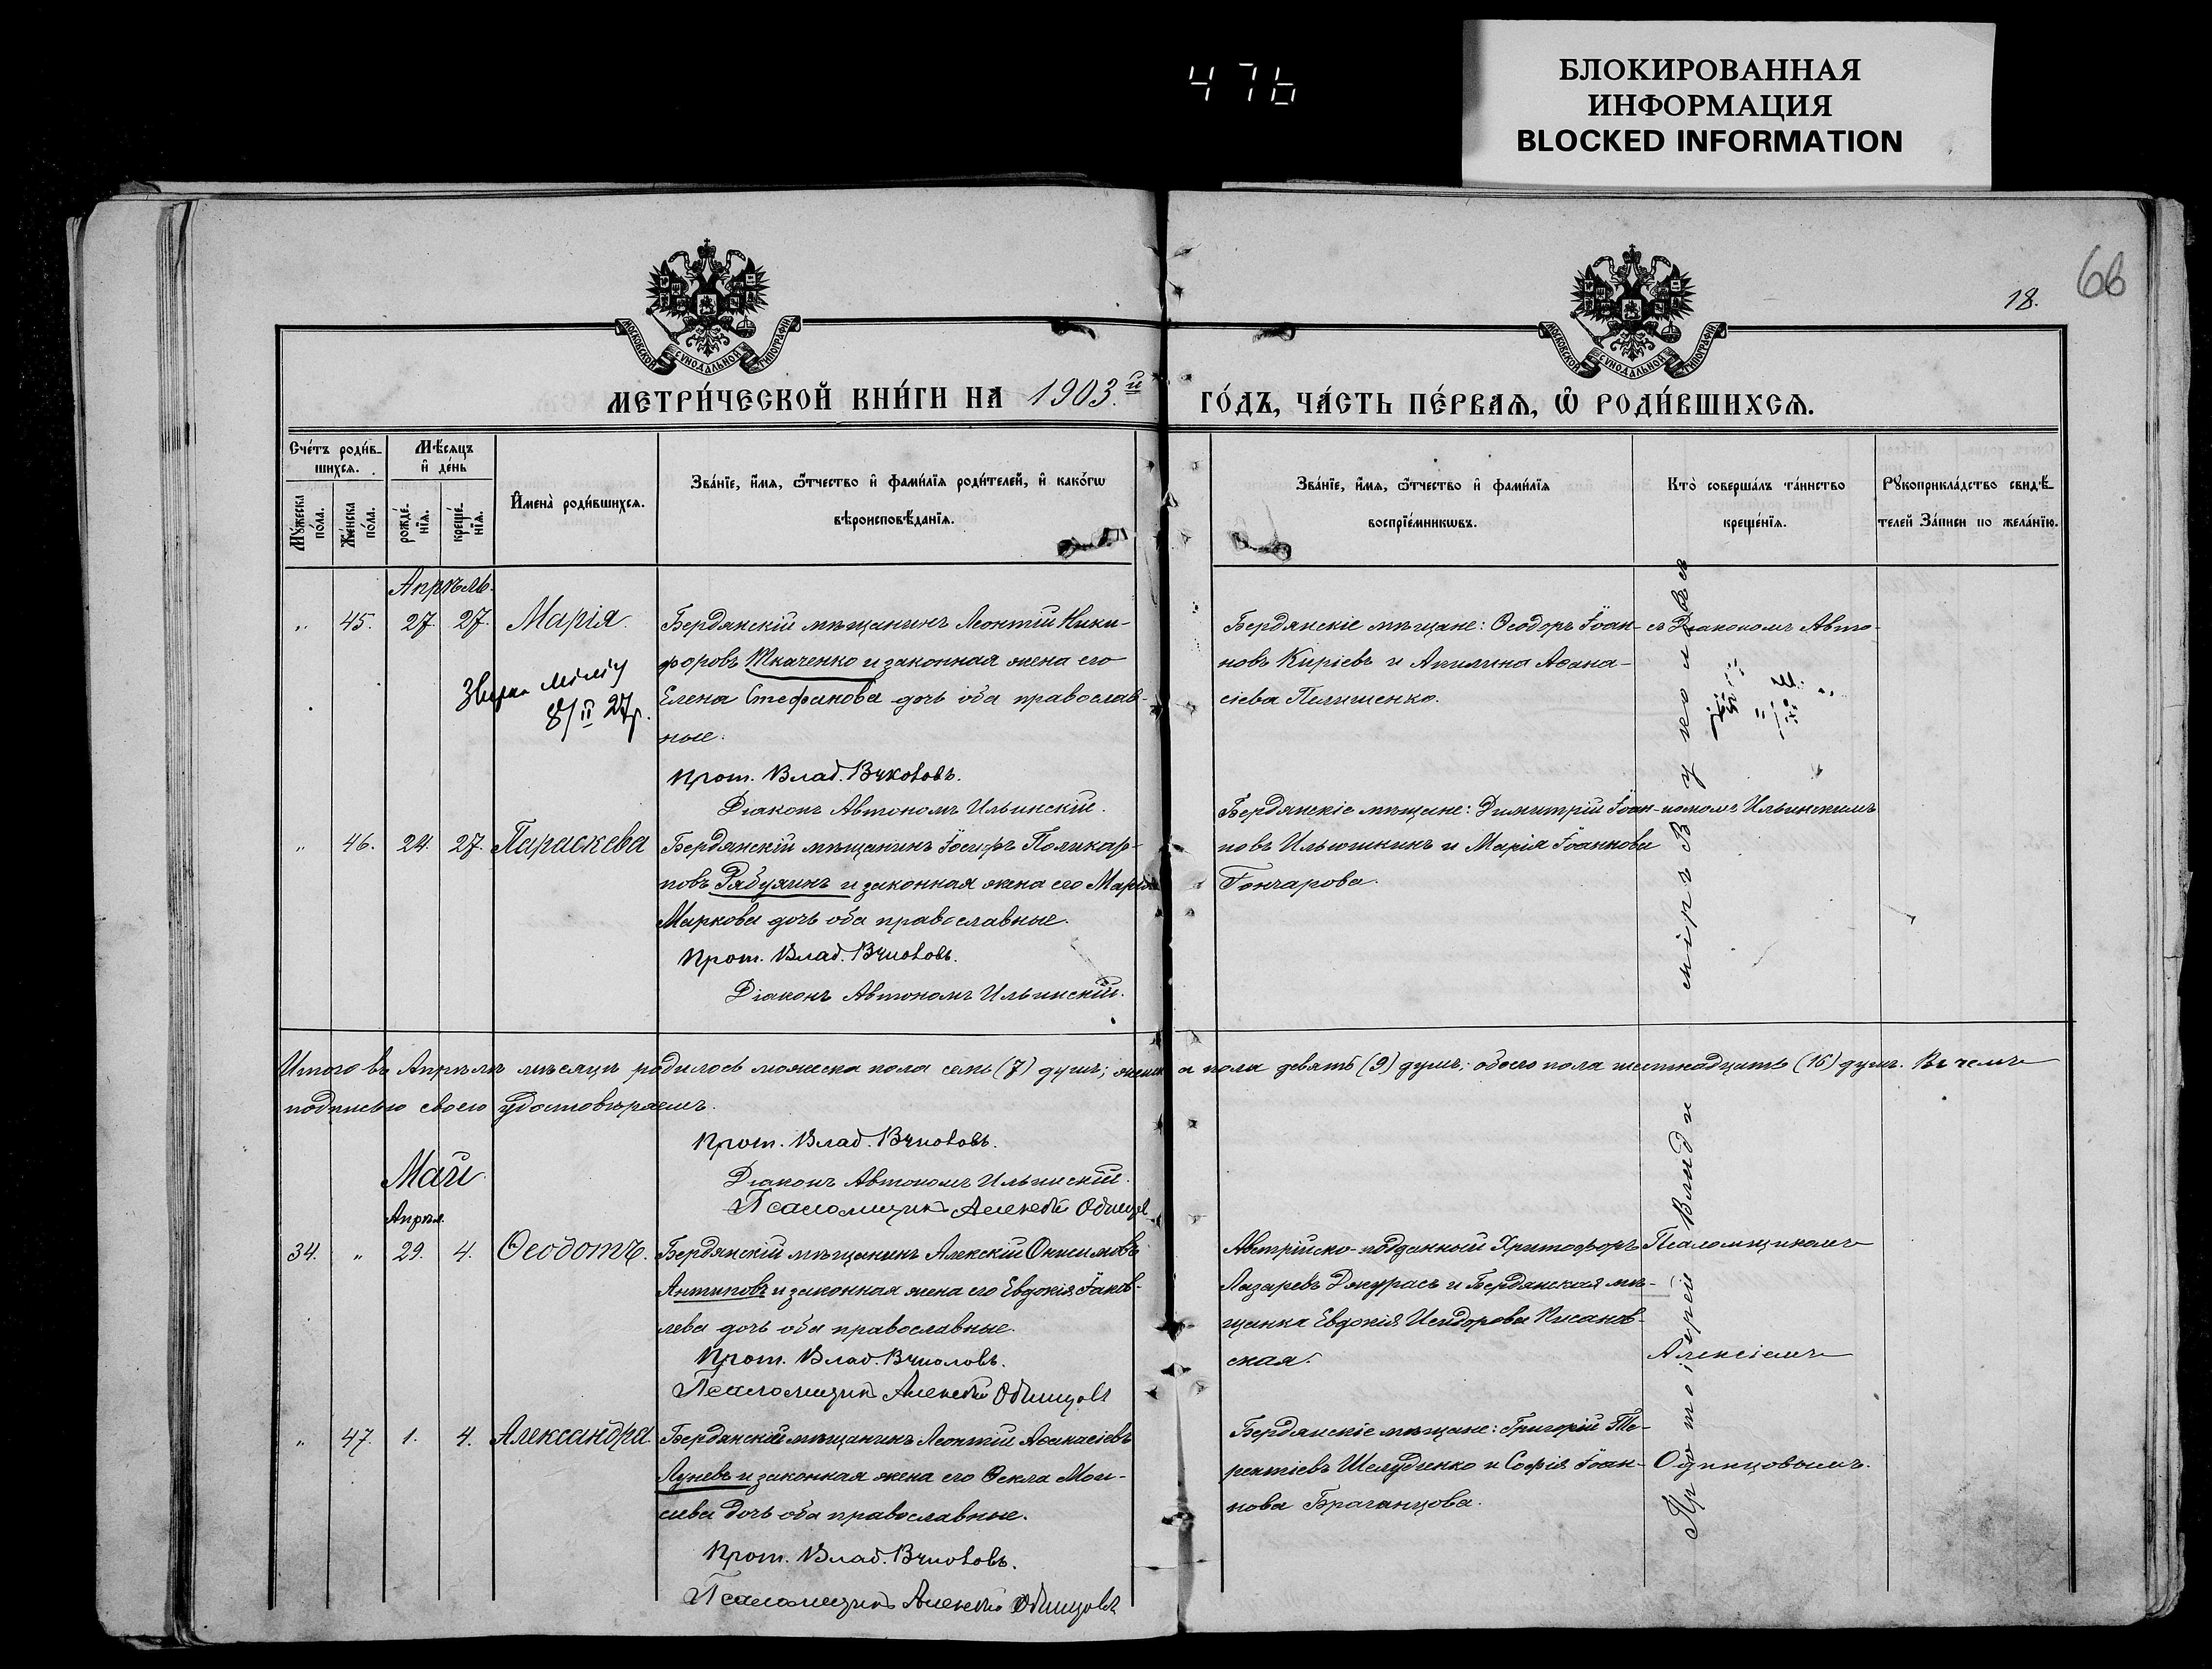 476
БЛОКИРОВАННАЯ
ИНФОРМАЦИЯ
BLOCKED INFORMATION
66
18.
МОСКОВСКОЙ СУНОДАЛЬНОЙ ТИПОГРАФІИ
МОСКОВСКОЙ СУНОДАЛЬНОЙ ТИПОГРАФІИ
МЕТРИ́ЧЕСКОЙ КНИ́ГИ НА 1903.й ГО́ДЪ, ЧА́СТЬ ПЕ́РВАѦ, Ѡ҆ РОДИ́ВШИХСѦ.
Сче́тъ роди́в-
шихсѧ.
Му́жеска по́ла.
Же́нска по́ла.
Мѣ́сѧцъ
и҆ де́нь
рожде́-
нїѧ.
креще́-
нїѧ.
И҆мена̀ роди́вшихсѧ.
Зва́нїе, и҆́мѧ, ѻ҆́тчество и҆ фами́лїѧ роди́телей, и҆ како́гѡ
вѣроисповѣ́данїѧ.
Зва́нїе, и҆́мѧ, ѻ҆́тчество и҆ фами́лїѧ
воспрїе́мникѡвъ.
Кто̀ соверша́лъ та́инство
креще́нїѧ.
Рꙋкоприкла́дство свидѣ́-
телей За́писи по жела́нїю.
Апрѣль.
" 45. 27. 27. Марія.
Бердянскій мѣщанинъ Леонтій Ники-
форовъ Ткаченко и законная жена его
Елена Стефанова дочь оба православ-
ные.
8/II 27р.
Прот. Влад. Вуколовъ.
Діаконъ Автономъ Ильинскій.
Бердянскіе мѣщане: Ѳеодоръ Іоан-
новъ Киріевъ и Акилина Аѳана-
сіева Пилишенко.
съ Діакономъ Авто-
" 46. 24. 27. Параскева
Бердянскій мѣщанинъ Іосифъ Поликар-
повъ Рябухинъ и законная жена его Марія
Маркова дочь оба православные.
Прот. Влад. Вуколовъ.
Діаконъ Автономъ Ильинскій.
Бердянскіе мѣщане: Димитрій Іоан-
новъ Ильюшкинъ и Марія Іоаннова
Гончарова.
номомъ Ильинскимъ
Итого въ Апрѣлѣ мѣсяцѣ родилось мужеска пола семь (7) душъ; женска пола девять (9) душъ; обоего пола шестнадцать (16) душъ. Въ чемъ
подписью своею удостовѣряемъ.
Прот. Влад. Вуколовъ.
Діаконъ Автономъ Ильинскій.
Псаломщикъ Алексѣй Одинцов
Май
Апрѣл.
34. " 29. 4. Ѳеодотъ.
Бердянскій мѣщанинъ Алексій Онисимовъ
Антиповъ и законная жена его Евдокія Іаков-
лева дочь оба православные.
Прот. Влад. Вуколовъ.
Псаломщикъ Алексѣй Одинцовъ
Австрійско-подданный Христофоръ
Лазаревъ Джурасъ и Бердянская мѣ-
щанка Евдокія Исидорова Писанов-
ская.
Псаломщикомъ
Алексіемъ
" 47. 1. 4. Александра
Бердянскій мѣщанинъ Леонтій Аѳанасіевъ
Луневъ и законная жена его Ѳекла Мои-
сеева дочь оба православные.
Прот. Влад. Вуколовъ.
Псаломщикъ Алексѣй Одинцовъ
Бердянскіе мѣщане: Григорій Те-
рентіевъ Шелудченко и Софія Іоан-
нова Браганцова.
Одинцовымъ.
Протоіерей Владиміръ Вуколовъ